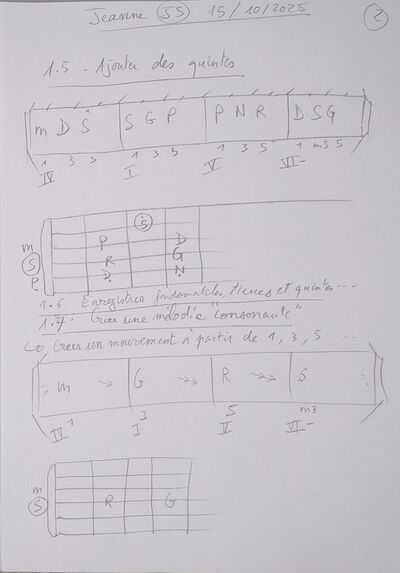 Jeanne J5 15/10/2025 2
1.5 - Ajouter des quintes
m D S S G P P N R D S G
1 3 5 1 3 5 1 3 5 1 m3 5
IV I V VI-
S
P D
m R G
S D N
P
1.6 Enregistrer fondamentales, tierces et quintes...
1.7. Créer une mélodie "consonante"
Créer un mouvement à partir de 1, 3, 5 ...
m G R S
1 3 5 m3
IV I V VI-
m
S R G